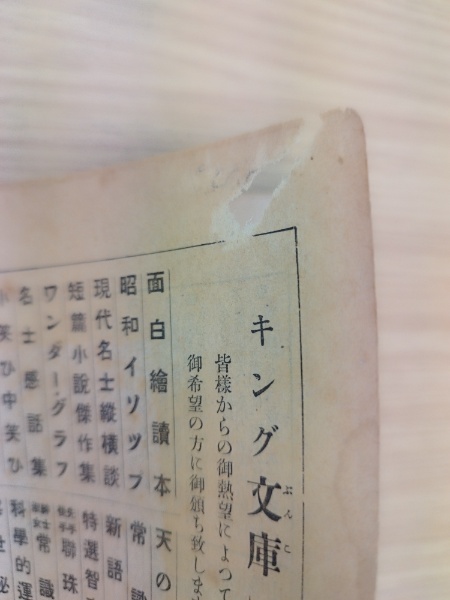 キング文庫
ぶんこ
皆樣からの御熱望によつて
御希望の方に御頒ち致します
面白繪讀本 天の
昭和イソツプ 常識
現代名士縱橫談 新語
短篇小說傑作集 特選智
ワンダーグラフ 聯珠
名士感話集 常識
小笑ひ中笑ひ 科學的運